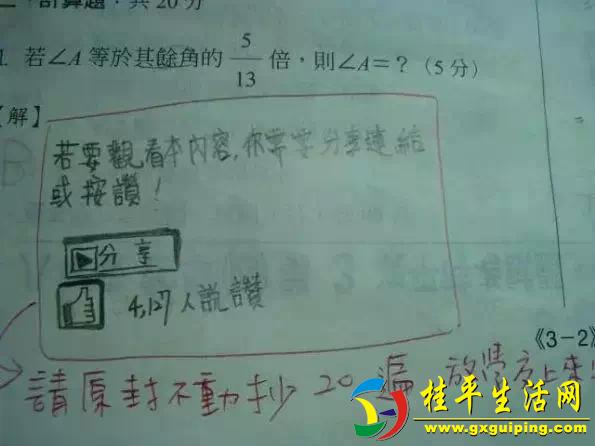 計算題：共20分
1. 若∠A等於其餘角的 5/13 倍，則∠A=？（5分）
【解】
若要觀看本內容，你需要分享連結
或按讚！
分享
4,127人說讚
《3-2》
請原封不動抄20遍 放學交上來
桂平生活网
www.gxguiping.com